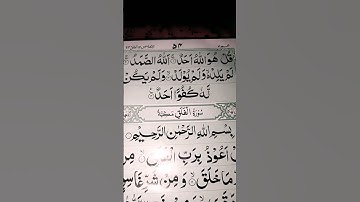 ۵۴
قُلْ هُوَ اللّٰهُ اَحَدٌ ۚ اَللّٰهُ الصَّمَدُ ۚ
لَمْ يَلِدْ ۙ وَلَمْ يُوْلَدْ ۙ وَلَمْ يَكُنْ
لَّهٗ كُفُوًا اَحَدٌ
سُوْرَةُ الْفَلَقِ مَكِّيَّةٌ
بِسْمِ اللّٰهِ الرَّحْمٰنِ الرَّحِيْمِ
اَعُوْذُ بِرَبِّ
مَا خَلَقَ ۙ وَمِنْ شَرِّ غَاسِ